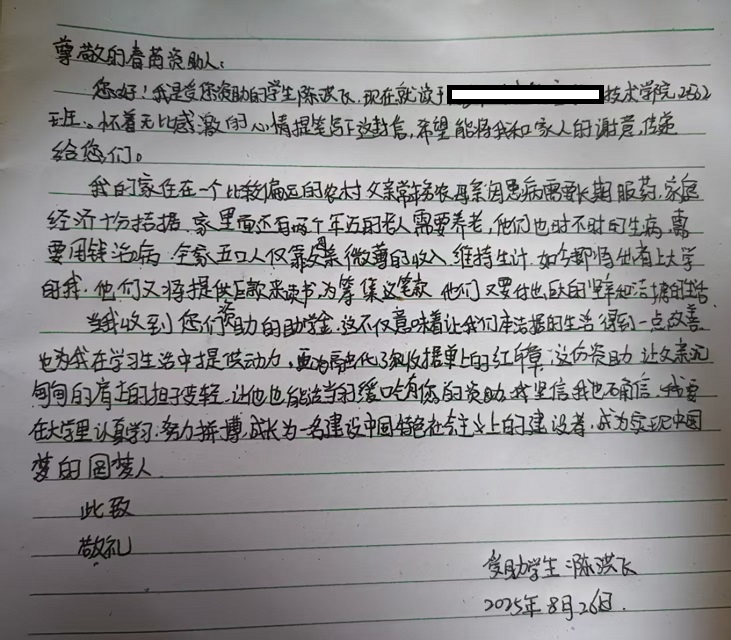 尊敬的春苗资助人:
您好!我是受您资助的学生陈洪飞,现在就读于 技术学院2562
班。怀着无比感激的心情提笔写下这封信,希望能将我和家人的谢意,传递
给您们。
我的家住在一个比较偏远的农村 父亲常年务农母亲因患病需要长期服药,家庭
经济十分拮据,家里面还有两个年迈的老人需要养老,他们也时不时的生病,需
要用钱治病 全家五口人仅靠父亲微薄的收入 维持生计 如今都将出有上大学
的我,他们又将提供巨款来读书,为筹集这笔款 他们又要付出 的艰辛和 拮据的生活
当我收到您们资助的助学金,这不仅意味着让我们本拮据的生活得到一点改善
也为我在学习生活中提供动力, 收据单上的红印章,这份资助 让父亲沉
甸甸的肩上的担子变轻,让他也能适当的缓口 有你的资助,我坚信我也不 信,我要
在大学里认真学习,努力拼搏,成长为一名建设中国特色社会主义上的建设者,成为实现中国
梦的圆梦人
此致
敬礼
受助学生:陈洪飞
2025年8月26日.